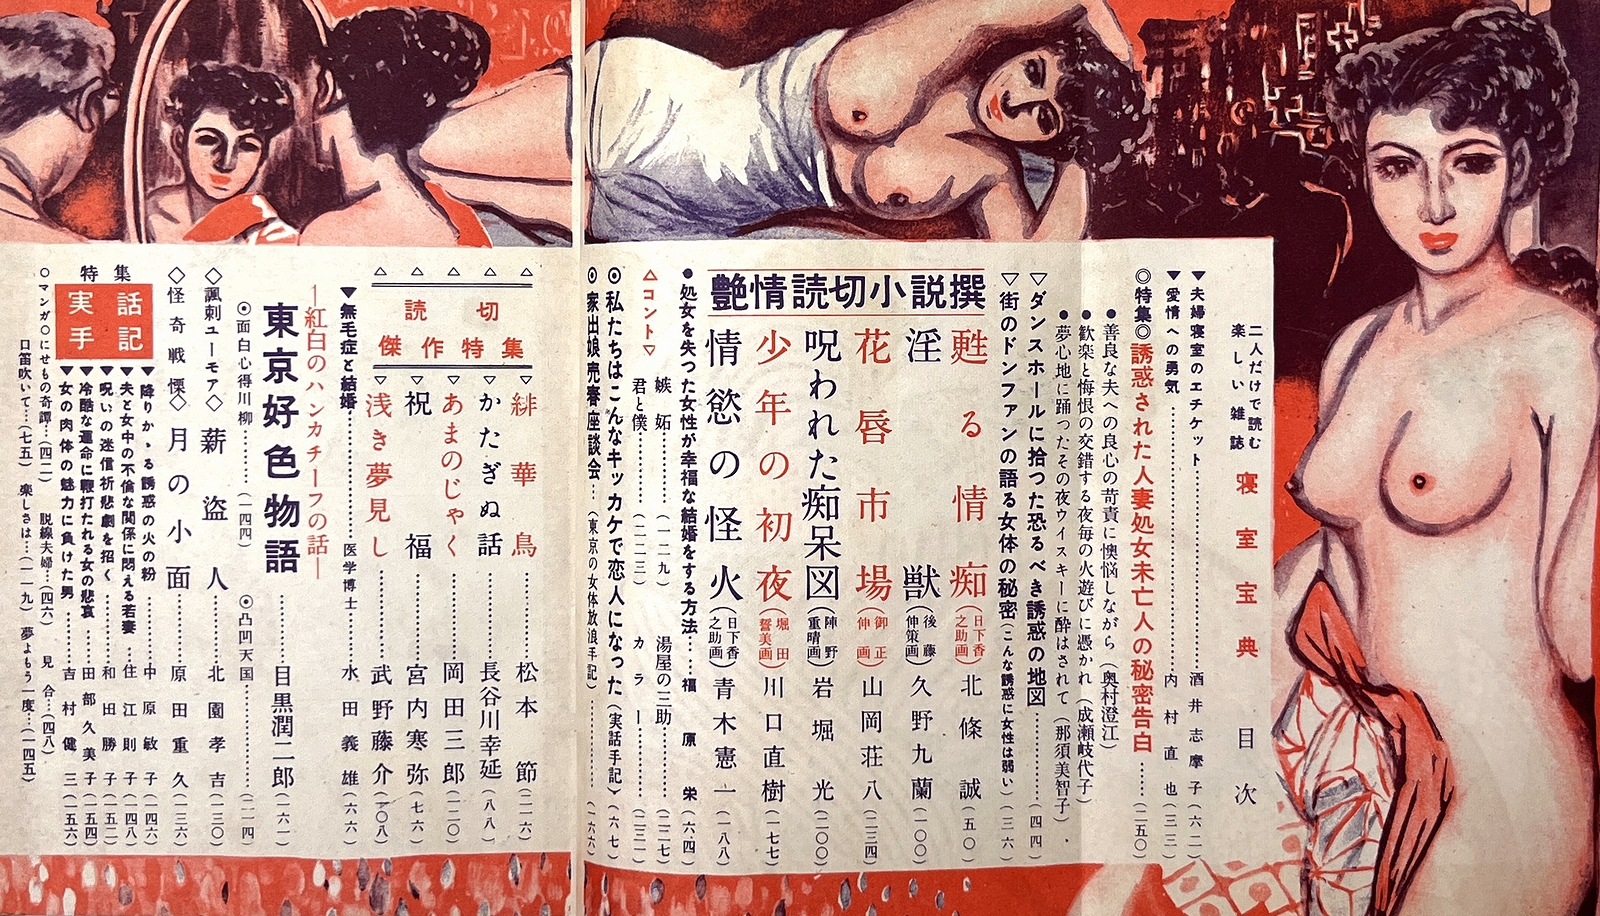 二人だけで読む
楽しい雑誌
寝室宝典
目次
▼夫婦寝室のエチケット……酒井志摩子(六二)
▼愛情への勇気……内村直也(三三)
◎特集◎誘惑された人妻処女未亡人の秘密告白……(二五〇)
●善良な夫への良心の苛責に懊悩しながら(奥村澄江)
●歓楽と悔恨の交錯する夜毎の火遊びに憑かれ(成瀬岐代子)
●夢心地に踊ったその夜ウイスキーに酔はされて(那須美智子)
▽ダンスホールに拾った恐るべき誘惑の地図……(四四)
▽街のドンファンの語る女体の秘密(こんな誘惑に女性は弱い)(三六)
艶情読切小説撰
甦る情痴(日下香之助画)北條誠(五〇)
淫獣(後藤伸策画)久野九蘭(一〇〇)
花唇市場(御正伸画)山岡荘八(二三四)
呪われた痴呆図(陣野重晴画)岩堀光(二〇〇)
少年の初夜(堀田誓美画)川口直樹(一七七)
情慾の怪火(日下香之助画)青木憲一(一八八)
●処女を失った女性が幸福な結婚をする方法……福原栄(六四)
△コント▽
嫉妬……(一二九)
湯屋の三助……(二二七)
君と僕……(二二三)
カラー……(二三二)
◎私たちはこんなキッカケで恋人になった(実話手記)(六七)
◎家出娘売春座談会…(東京の女体放浪手記)……(一六六)
読切傑作特集
△▽緋華鳥……松本節(二一六)
△▽かたぎぬ話……長谷川幸延(八八)
△▽あまのじゃく……岡田三郎(一二〇)
△▽祝福……宮内寒弥(七六)
△▽浅き夢見し……武野藤介(一〇八)
▼無毛症と結婚……医学博士……水田義雄(六六)
―紅白のハンカチーフの話―
東京好色物語……目黒潤二郎(一六一)
◎面白心得川柳…(一四四)
◎凸凹天国……(二一四)
◇諷刺ユーモア◇薪盗人……北園孝吉(一三〇)
◇怪奇戦慄◇月の小面……原田重久(一三六)
特集
実話手記
▼降りかゝる誘惑の火の粉……中原敏子(一四六)
▼夫と女中の不倫な関係に悶える若妻…住江則子(一四八)
▼呪いの迷信祈悲劇を招く……和田勝子(一五二)
▼冷酷な運命に鞭打たれる女の悲哀…田部久美子(一五四)
▼女の肉体の魅力に負けた男……吉村健三(一五六)
○マンガ○にせもの奇譚…(四二)　脱線夫婦…(四六)　見合…(四八)
口笛吹いて…(七五)　楽しさは…(一一九)　夢よもう一度…(一四五)